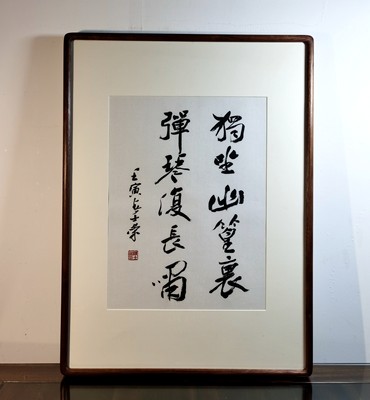 獨坐幽篁裏
彈琴復長嘯
壬寅